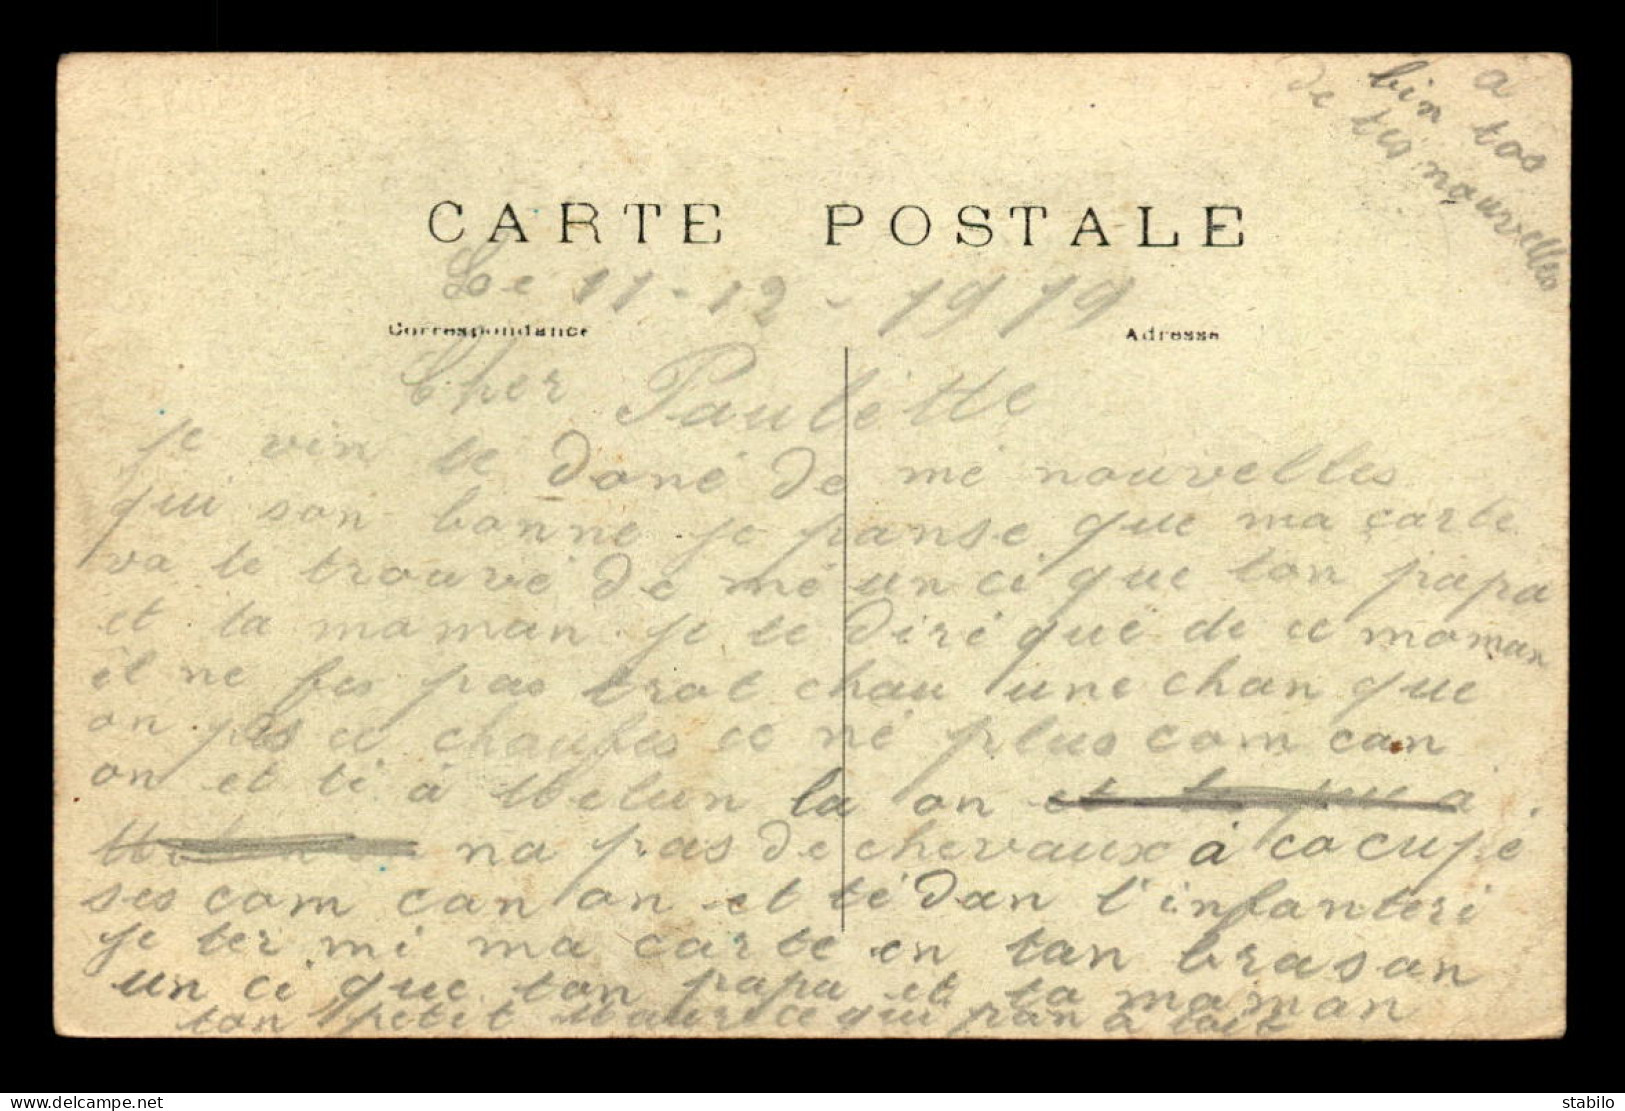 à
bin tos
de tes nourvelles
CARTE POSTALE
Le 11-12-1919
Correspondance
Adresse
Cher Paulette
je vin te doné de mé nouvelles
qui son bonne je panse que ma carte
va te trouvé de mé un ci que ton papa
et ta maman je te diré que de ce moman
il ne fes pas trot chau une chan que
on pes ce chaufes ce né plus com can
on et ti à Melun la on
na pas de chevaux à cocupé
ses com can on et té dan l'infanteri
je ter mi ma carte en tan brasan
un ci que ton papa et ta maman
ton petit Maurice qui pan a toit
delcampe.net
stabilo